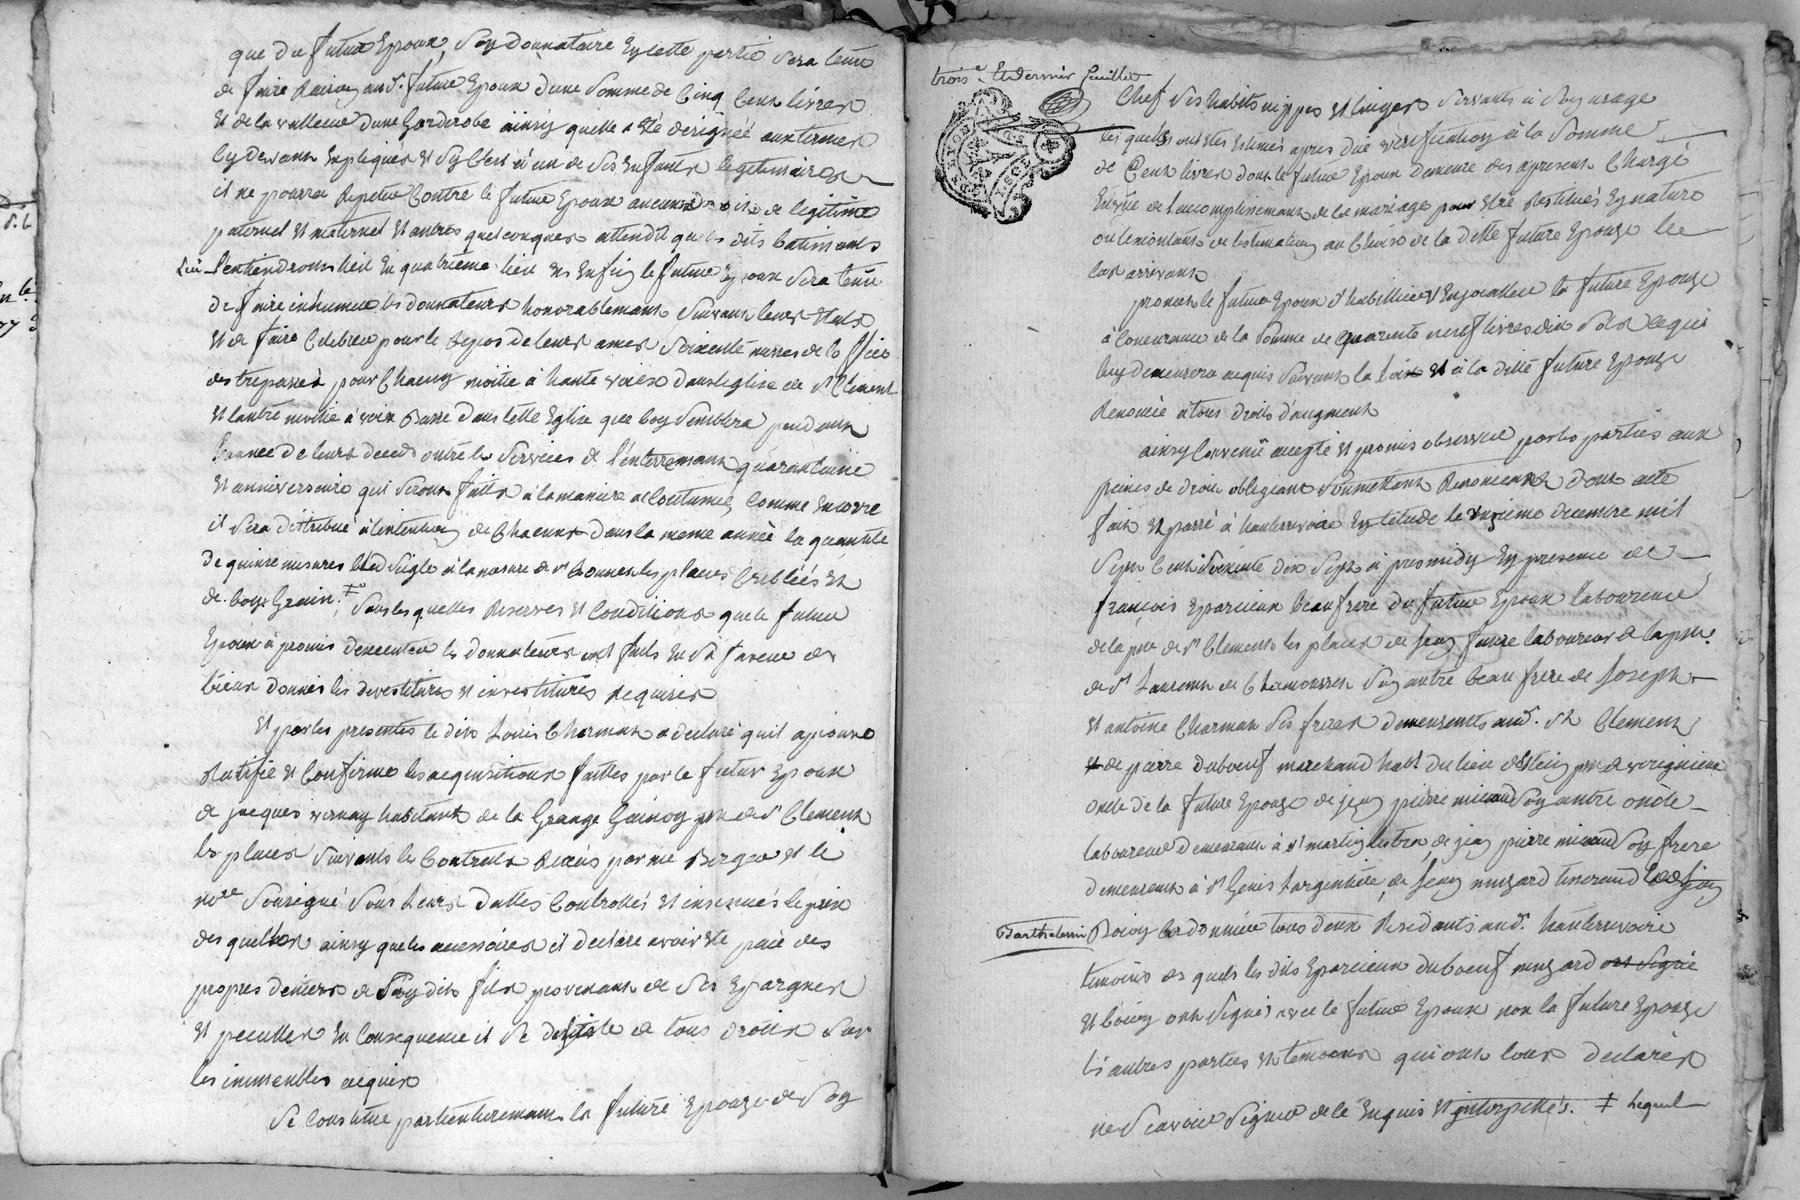 que du futur Epoux, Soy donnataire En cette partie Sera tenu
de faire Raison aud.t futur Epoux d'une Somme de Cinq Cent livres
Et de la valleur d'une Garderobe ainsy quelle a Eté designée aux termes
Cy devant Expliqués Et Sy C'est à un de Ses Enfants legitimaires
il ne pourra Repeter Contre le futur Epoux aucuns droits de legitime
paternel Et maternel Et autres quelconques attendû que les dits batiments
Lui L'entiendront lieu En quatrieme lieu Et Enfin le futur Epoux Sera tenû
de faire inhumer les donnateurs honnorablement Suivant leurs Etats
Et de faire Celebrer pour le Repos de leurs ames Soixente messes de
des trepassés pour Chacun moitié à haute voix dans leglise de St Clement
Et lautre moitié à voix Basse dans telle Eglise que bon Semblera pendant
L'année de leurs deced outre les Services de l'enterrement quarantaine
Et anniversaire qui Seront faits à la maniere acCoutumée, Comme Encorre
il Sera distribué à lintention de Chacun dans la meme année la quantité
de quinze mesures bled Seigle à la mesure de St bonnet les places Criblées Et
de bon Grain. ‡ Sous les quelles Reserves Et Conditions que le futur
Epoux à promis d'executer les donnateurs ont faits En Sa faveur des
biens donnés les devestitures Et investitures Requises
Et par les presentes le dit Louis Charmat a declaré qu'il aprouve
Ratifie Et Confirme les acquisitions faittes par le futur Epoux
de jacques vernay habitant de la Grange Guinoy psse de St Clement
les places Suivants les Contrats Recus par me Berger Et le
nore Sousigné Sous Leurs dattes Controllés Et insinués le prix
des quelles ainsy que les accessoires il declare avoir Eté paié des
propres deniers de Son dit fils provenant de Ses Epargnes
Et peculles En Consequence il Se desiste de tous droits Sur
les immeubles acquis
Se Constitue particulierement la future Epouze de Soy
troise Et dernier feuillet
Chef Ses habits nippes Et linges Servants à Son usage
les quels ont Etes Estimés apres düe verification à la Somme
de Cent livres dont le futur Epoux demeure des apresent Chargé
Envüe de laccomplissement de le mariage pour Etre Restitués En nature
ou le montant de lestimation au Choix de la ditte future Epouze le
Cas arrivant
promet le futur Epoux d'habiller Et Enjoualler la future Epouze
à Concurrance de la Somme de quarente neuf livres dix Sols ce qui
luy demeurera acquis Suivant la loix Et à la ditte future Epouze
Renoncée à tous droits d'augment
ainsy Convenû accepté Et promis observer par les parties aux
peines de droit obligeant Soumettant Renonceant dont acte
fait Et passé à hauterivoire En letude le onzieme decembre mil
Sept Cent Soixante dix Sept à presmidy En presence de
françois Eparcieux beaufrere du futur Epoux laboureur
de la psse de St Clement les places de jean faure laboureur de la psse
de St Laurent de Chamousset Son autre beau frere de Joseph
Et antoine Charmat Ses freres demeurants aud.t St Clement
Et de pierre duboeuf marchand habt. du lieu psse de virignieux
oncle de la future Epouze de jean pierre micoud Son autre oncle
laboureur demeurant à St martin lestra, de jean pierre micoud Son frere
demeurant à St Genis Largentiere, de Jean muzard tisserand
Barthelemi Boivin Cordonnier tous deux Residants aud.t hauterivoire
temoins des quels les dits Eparcieux duboeuf muzard ont Signé
Et boivin ont Signés avec le futur Epoux non la future Epouze
les autres parties Et temoins qui ont tous declarés
ne Scavoir Signer de ce Enquis Et interpellés. ‡ Lequel